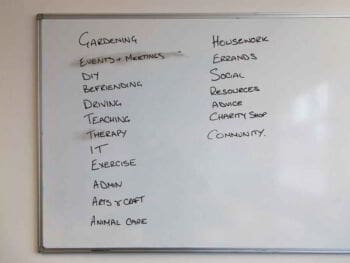 GARDENING
EVENTS + MEETINGS
DIY
BEFRIENDING
DRIVING
TEACHING
THERAPY
IT
EXERCISE
ADMIN
ARTS & CRAFT
ANIMAL CARE
HOUSEWORK
ERRANDS
SOCIAL
RESOURCES
ADVICE
CHARITY SHOP
COMMUNITY.